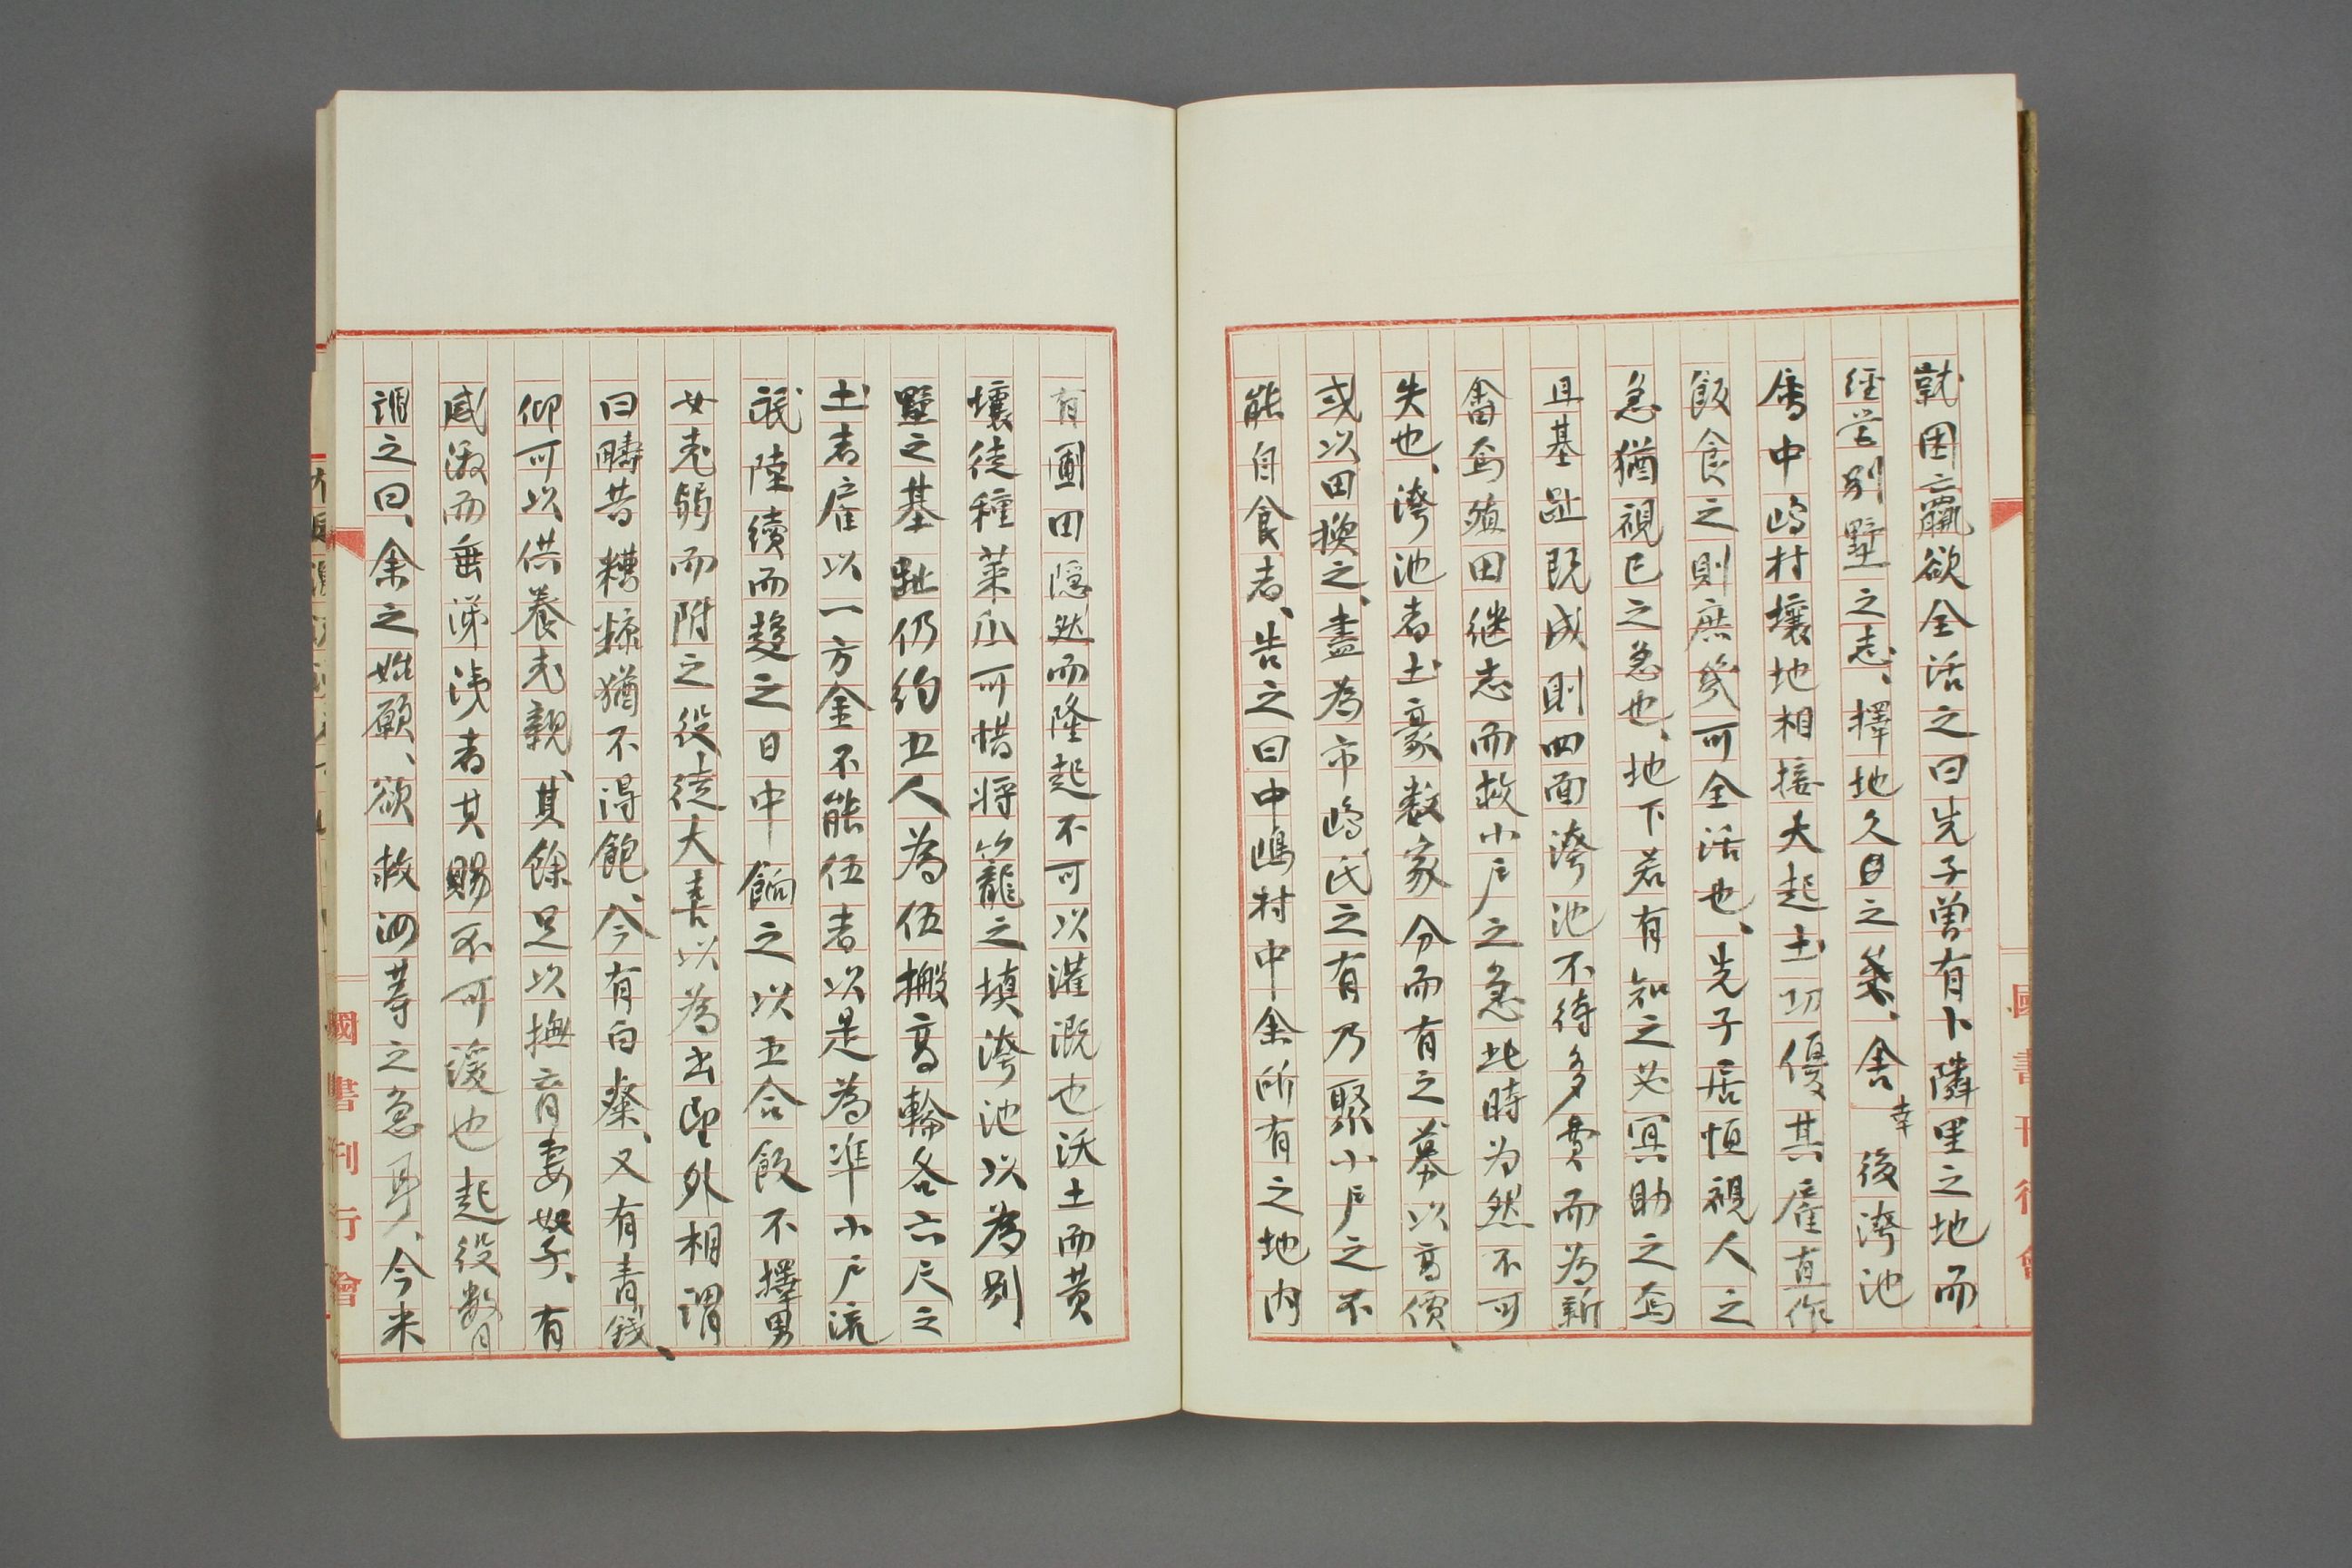 就困羸欲全活之曰先子曽有卜隣里之地而
経営別墅之志、擇地久矣、舎幸後濟池
中嶋村壌地相接大起土功優其雇直作
飯食之則庶幾可全活也、先子居恒視人之
急猶視己之急也、地下若有知之必冥助之焉
且基趾既成則四面池不待多費而為新
畬焉殖田継志而救小戸之急此時為然不可
失也、池者土豪数家分而有之募以高價、
或以田換之、盡為市嶋氏之有乃聚小戸之不
能自食者、告之曰中嶋村中余所有之地内
有圃田隠然而隆起不可以灌漑也沃土而黄
壌徒種菜瓜可惜将籠之填池以為別
墅之基趾仍約五人為伍搬高輪各六尺之
土者雇以一方金不能伍者以是為準小戸流
氓陸続而趨之日中餉之以五合飯不擇男
女老弱而附之役徒大喜以為出即外相謂
曰疇昔糟糠猶不得飽、今有白粲、又有青銭、
仰可以供養老親、其餘足以撫育妻孥子、有
感激而垂涕洟者其賜不可諼也起役数月
謂之曰、余之始願、欲救汝等之急耳、今米
國書刊行會